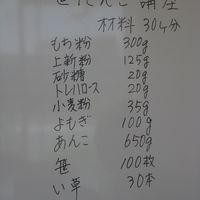 笹だんご 講座
材料 30ヶ分
もち粉 300g
上新粉 125g
砂糖 20g
トレハロース 20g
小麦粉 35g
よもぎ 100g
あんこ 650g
笹 100枚
い草 30本